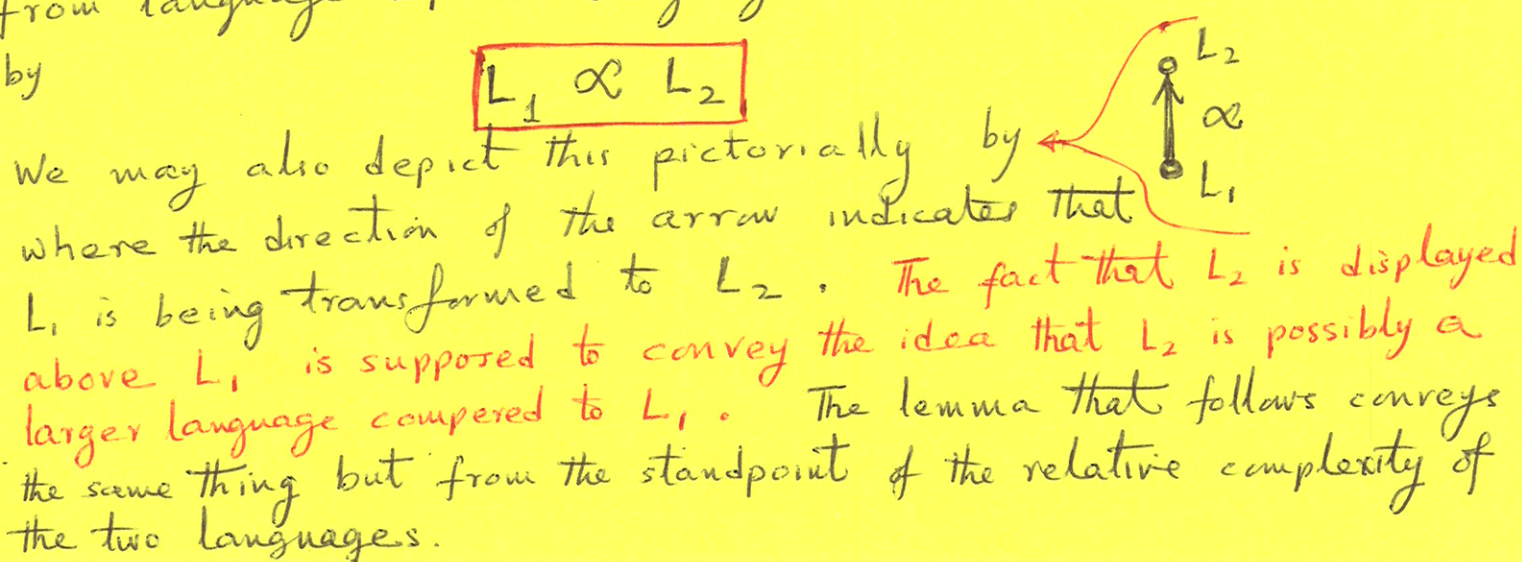 from language
by
L₁ ∝ L₂
L₂
∝
L₁
We may also depict this pictorially by
where the direction of the arrow indicates that
L₁ is being transformed to L₂. The fact that L₂ is displayed
above L₁ is supposed to convey the idea that L₂ is possibly a
larger language compered to L₁. The lemma that follows conveys
the same thing but from the standpoint of the relative complexity of
the two languages.